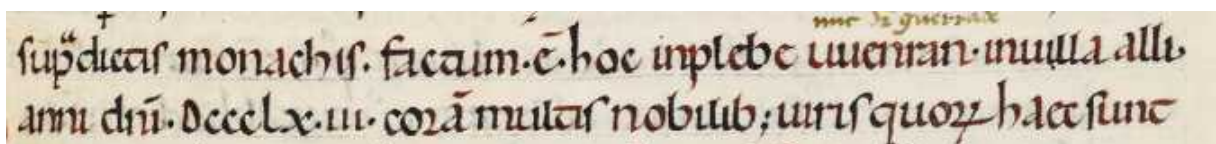 nunc dr guerran
sup̄dictis monachis. factum. ē. hoc inplebe uuenran. inuilla alli
anni dn̄i. Dccclx.iii. corā multis nobilib; uiris quoꝝ haec sunt